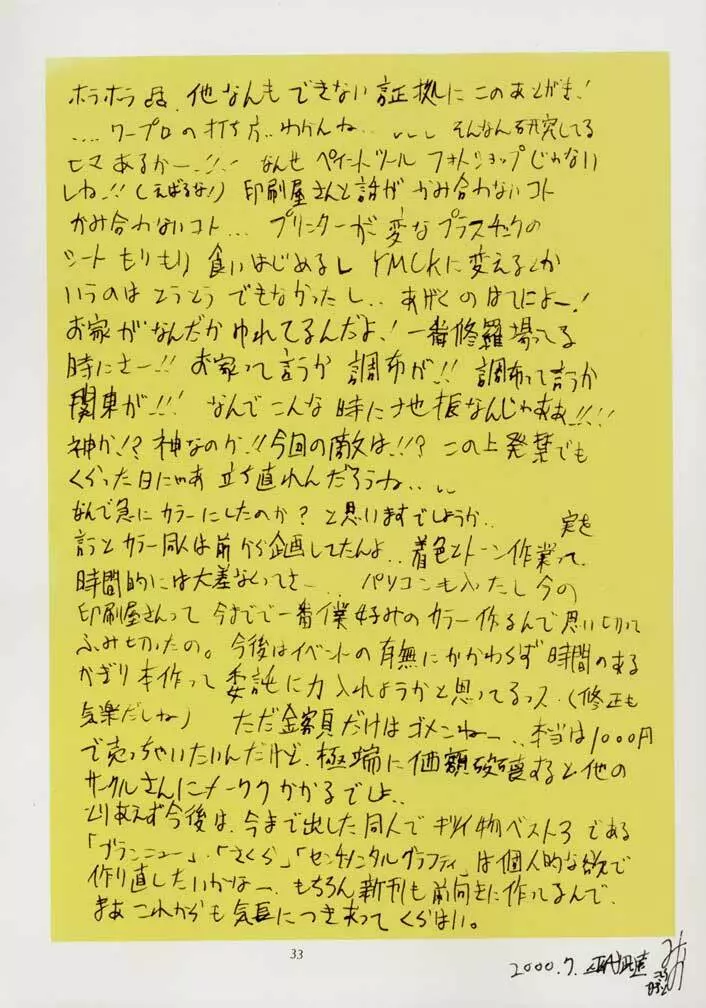 ホラホラ 、他なんもできない証拠にこのあとがき!
....ワープロの打ち方..わかんね....、、、、 そんなん研究してる
ヒマあるかー..!!.! なんせペイントツール フォトショップじゃない
しね..!!(えばるな!) 印刷屋さんと話が かみ合わないコト
かみ合わないコト.... プリンターが変なプラスチックの
シートもりもり 食いはじめるし YMCKに変えるとか
いうのは とうとう できなかったし.. あげくのはてによー.!
お家がなんだかゆれてるんだよ.! 一番修羅場ってる
時にさー..!! お家って言うか 調布が.!! 調布って言うか
関東が.!!! なんでこんな時に地振なんじゃああ.!!.!!
神か.!? 神なのか.!!今回の敵は.!!? この上発禁でも
くらった日にゃあ 立ち直れんだろうね..、、
なんで急にカラーにしたのか? と思いますでしょうか.. 実を
言うとカラー同人は前から企画してたんよ..着色とトーン作業って、
時間的には大差なくってさー... パソコンも入たし今の
印刷屋さんって 今までで一番僕好みのカラー作るんで思い切って
ふみ切ったの。今後はイベントの有無にかかわらず時間のある
かぎり本作って委託に力入れようかと思ってるっス.(修正も
気楽だしね) ただ金額だけはゴメンねー..、本当は1000円
で売っちゃいたいんだけど、極端に価額破壊すると他の
サークルさんにメーワクかかるでしょ..
とりあえず今後は、今まで出した同人でキツイ物ベスト3である
「ブランニュー」・「さくら」「センチメンタルグラフティ」は個人的な欲で
作り直したいかなー、もちろん新刊も前向きに作ってるんで、
まあこれからも気長につき合って くらはい。
33
2000.7.